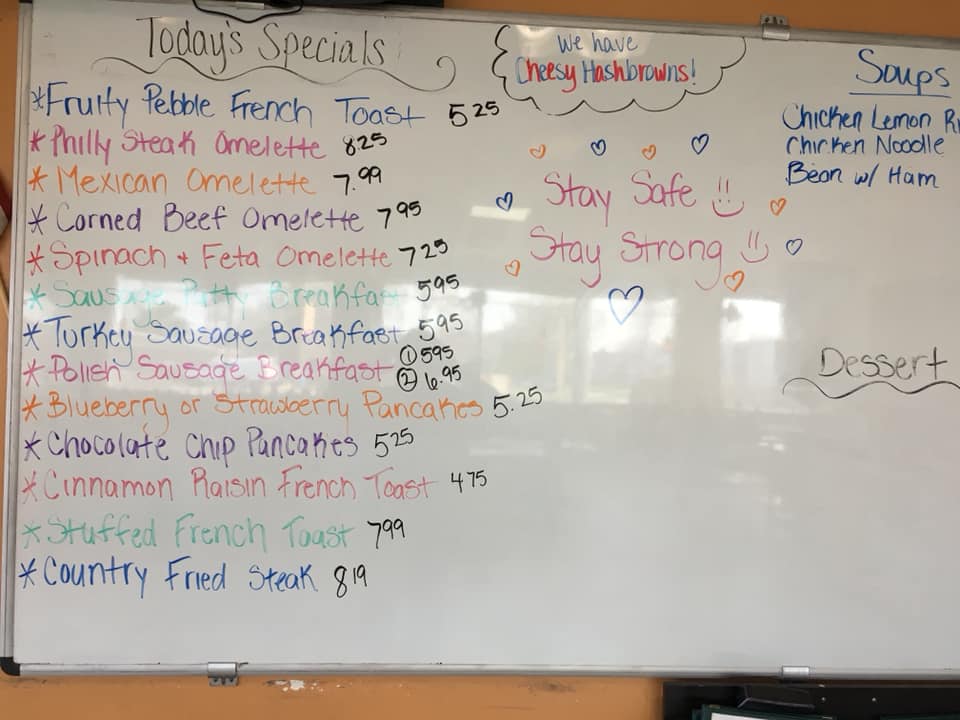 Today's Specials
*Fruity Pebble French Toast 5 25
*Philly Steak Omelette 8 25
*Mexican Omelette 7.99
*Corned Beef Omelette 7 95
*Spinach + Feta Omelette 7 25
*Sausage Patty Breakfast 5 95
*Turkey Sausage Breakfast 5 95
*Polish Sausage Breakfast ① 5 95
② 6.95
*Blueberry or Strawberry Pancakes 5.25
*Chocolate Chip Pancakes 5 25
*Cinnamon Raisin French Toast 4 75
*Stuffed French Toast 7 99
*Country Fried Steak 8 19
We have
Cheesy Hashbrowns!
Stay Safe !!
Stay Strong !!
Soups
Chicken Lemon
Chicken Noodle
Bean w/ Ham
Dessert